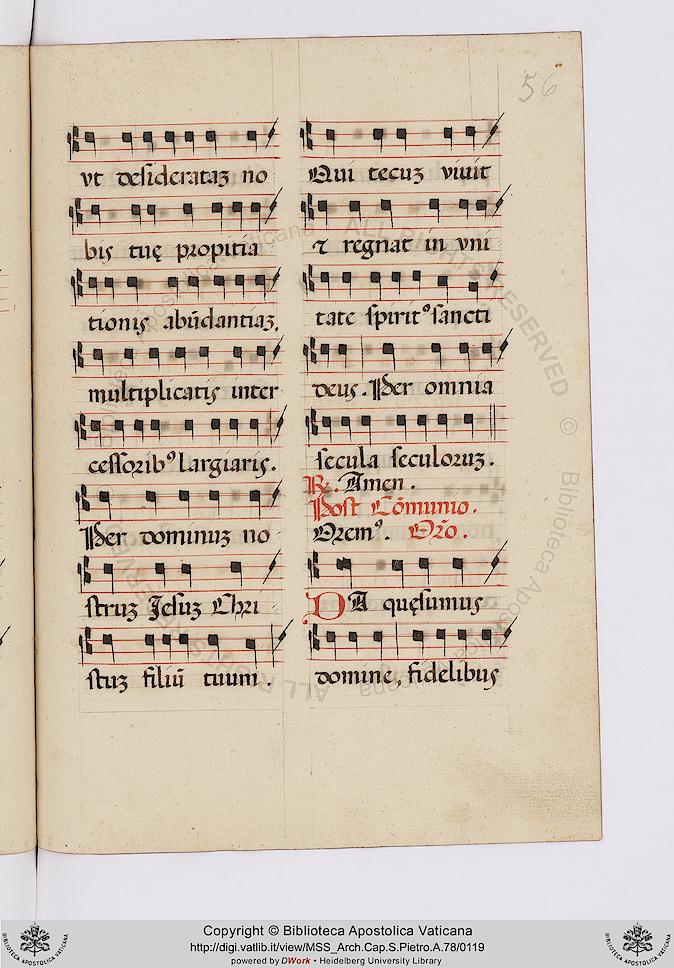 56
vt desiderataꝫ no
bis tuę propitia
tionis abūdantiaꝫ,
multiplicatis inter
cessoribꝰ largiaris.
Per dominuꝫ no
struꝫ Jesuꝫ Chri
stuꝫ filiū tuum.
Qui tecuꝫ viuit
⁊ regnat in vni
tate spiritꝰ sancti
deus. Per omnia
secula seculoruꝫ.
℟. Amen.
Post Cōmunio.
Oremꝰ. Orō.
DA quęsumus
domine, fidelibus
ALL RIGHTS RESERVED © Biblioteca Apostolica Vaticana
Copyright © Biblioteca Apostolica Vaticana
http://digi.vatlib.it/view/MSS_Arch.Cap.S.Pietro.A.78/0119
powered by DWork • Heidelberg University Library
BIBLIOTECA APOSTOLICA VATICANA
BIBLIOTECA APOSTOLICA VATICANA